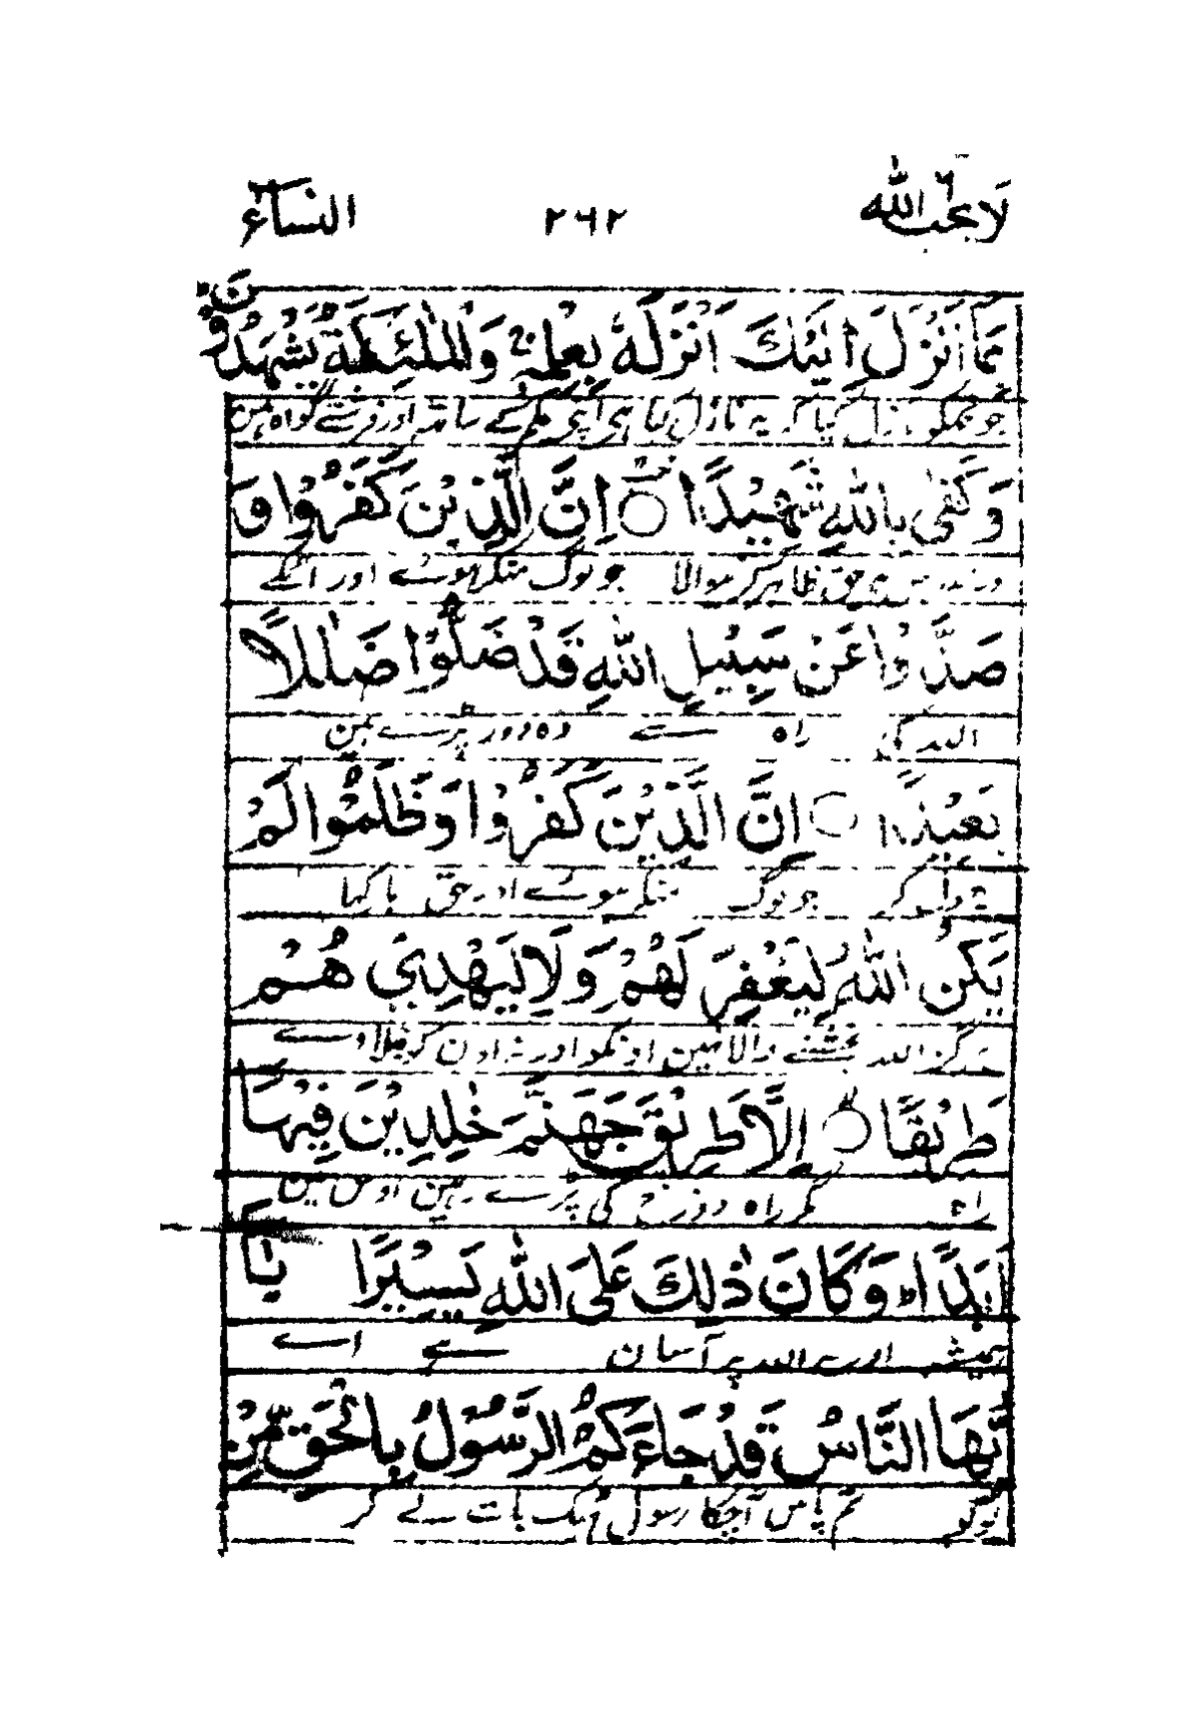 لا يحب الله ٦ ٢٦٢ النساء
بِمَا اَنْزَلَ اِلَيْكَ اَنْزَلَهٗ بِعِلْمِهٖ وَالْمَلٰٓئِكَةُ يَشْهَدُوْنَ
جو تمکو نازل کیا کہ یہ نازل کیا ہی اپنی علم کے ساتھ اور فرشتے گواہ ہین
وَكَفٰى بِاللّٰهِ شَهِيْدًا ۝ اِنَّ الَّذِيْنَ كَفَرُوْا وَ
حق ظاہر کرنیوالا جو لوگ منکر ہوئے اور اٹکے
صَدُّوْا عَنْ سَبِيْلِ اللّٰهِ قَدْ ضَلُّوْا ضَلٰلًا
اللہ کی راہ سے وہ دور پڑے ہین
بَعِيْدًا ۝ اِنَّ الَّذِيْنَ كَفَرُوْا وَظَلَمُوْا لَمْ
جو لوگ منکر ہوئے اور حق
يَكُنِ اللّٰهُ لِيَغْفِرَ لَهُمْ وَلَا لِيَهْدِيَهُمْ
ہرگز اللہ بخشنے والا نہین اونکو اور نہ اون کو
طَرِيْقًا ۝ اِلَّا طَرِيْقَ جَهَنَّمَ خٰلِدِيْنَ فِيْهَا
راہ مگر راہ دوزخ کی پڑے رہین اوس مین
اَبَدًا ؕ وَكَانَ ذٰلِكَ عَلَى اللّٰهِ يَسِيْرًا يٰٓا
ہمیشہ اور یہ اللہ پر آسان ہے اے
اَيُّهَا النَّاسُ قَدْ جَآءَكُمُ الرَّسُوْلُ بِالْحَقِّ مِنْ
لوگو تم پاس آچکا رسول ٹھیک بات لے کر